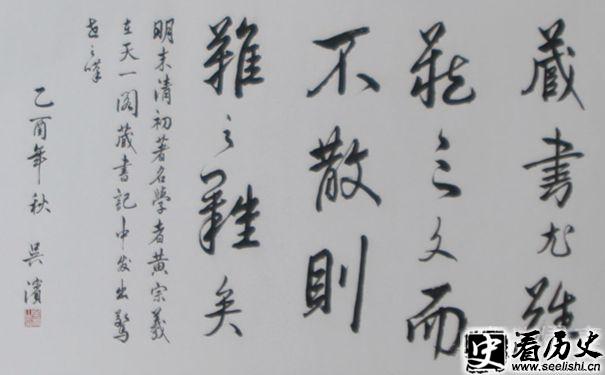 藏書尤難
藏之久而
不散則
難之難矣
明末清初著名學者黃宗羲
在天一阁藏書記中发出驚
世之嘆
乙酉年秋 吴濱
史 看历史
www.seelishi.cn